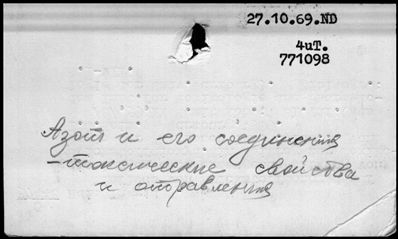 27.10.69.ND
4иТ.
771098
Азот и его соединения
-токсические свойства
и отравления